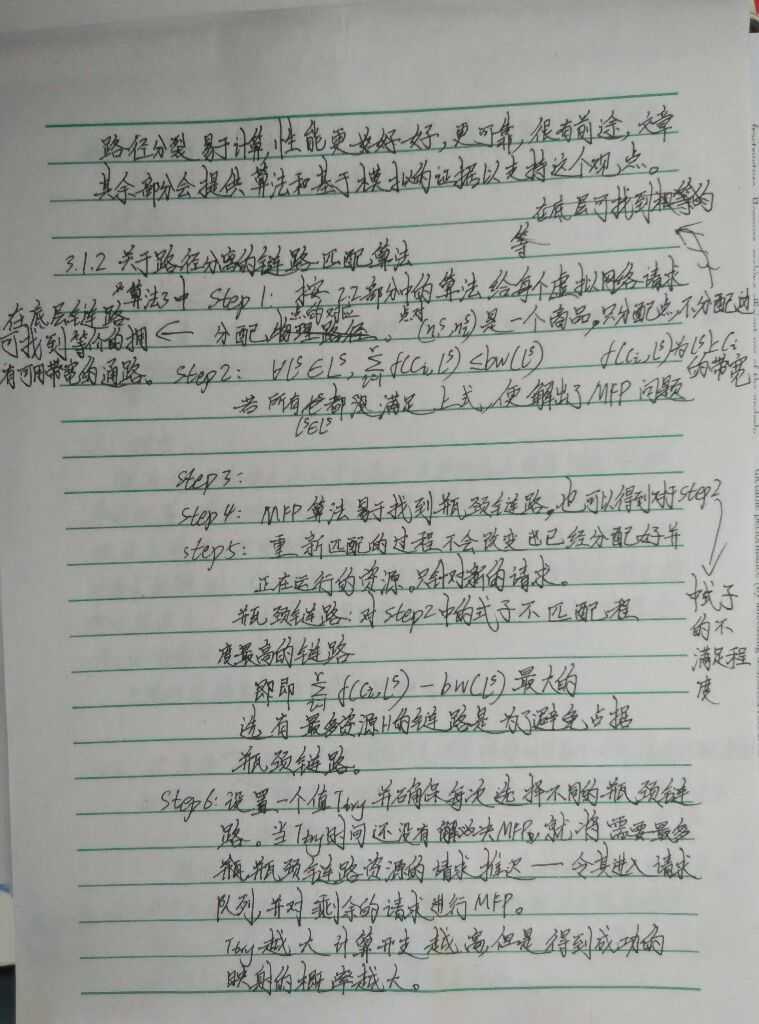 路径分裂易于计算,性能更好,更可靠,很有前途,文章
其余部分会提供算法和基于模拟的证据以支持这个观点。
在底层可找到相等的
等
3.1.2 关于路径分离的链路匹配算法
算法3中 Step 1: 按2.2部分中的算法给每个虚拟网络请求
点的对应 点对
在底层链路
可找到等价的拥
有可用带宽的通路。
← 分配物理路径。 (nˢ, nˢ) 是一个商品。只分配点,不分配边
Step 2: ∀lˢ∈Lˢ, Σ f(Cᵢ, lˢ) ≤ bw(lˢ) f(Cᵢ, lˢ)为lˢ上Cᵢ
的带宽
若所有 都满足上式,便解出了MFP问题
lˢ∈Lˢ
Step 3:
Step 4: MFP算法易于找到瓶颈链路,也可以得到对于Step 2
中式子
的不
满足程
度
Step 5: 重新匹配的过程不会改变已经分配好并
正在运行的资源。只针对新的请求。
瓶颈链路:对Step2中的式子不匹配程
度最高的链路
即即 Σ f(Cᵢ, lˢ) - bw(lˢ) 最大的
选有最多资源H的链路是为了避免占据
瓶颈链路。
Step 6: 设置一个值Ttry并确保每次选择不同的瓶颈链
路。当Ttry时间还没有解决MFP,就将需要最多
瓶颈链路资源的请求推迟——令其进入请求
队列,并对剩余的请求进行MFP。
Ttry越大计算开支越高,但是得到成功的
映射的概率越大。